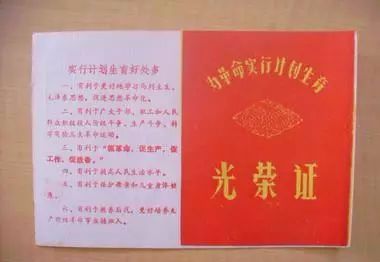 实行计划生育好处多
一、有利于更好地学习马列主义、
毛泽东思想，促进思想革命化。
二、有利于广大干部、职工和人民
群众积极投入阶级斗争、生产斗争、科
学实验三大革命运动。
三、有利于“抓革命，促生产，促
工作，促战备。”
四、有利于提高人民生活水平。
五、有利于保护母亲和儿童身体健
康。
六、有利于教养后代，更好培养无
产阶级革命事业接班人。
为革命实行计划生育
光荣证